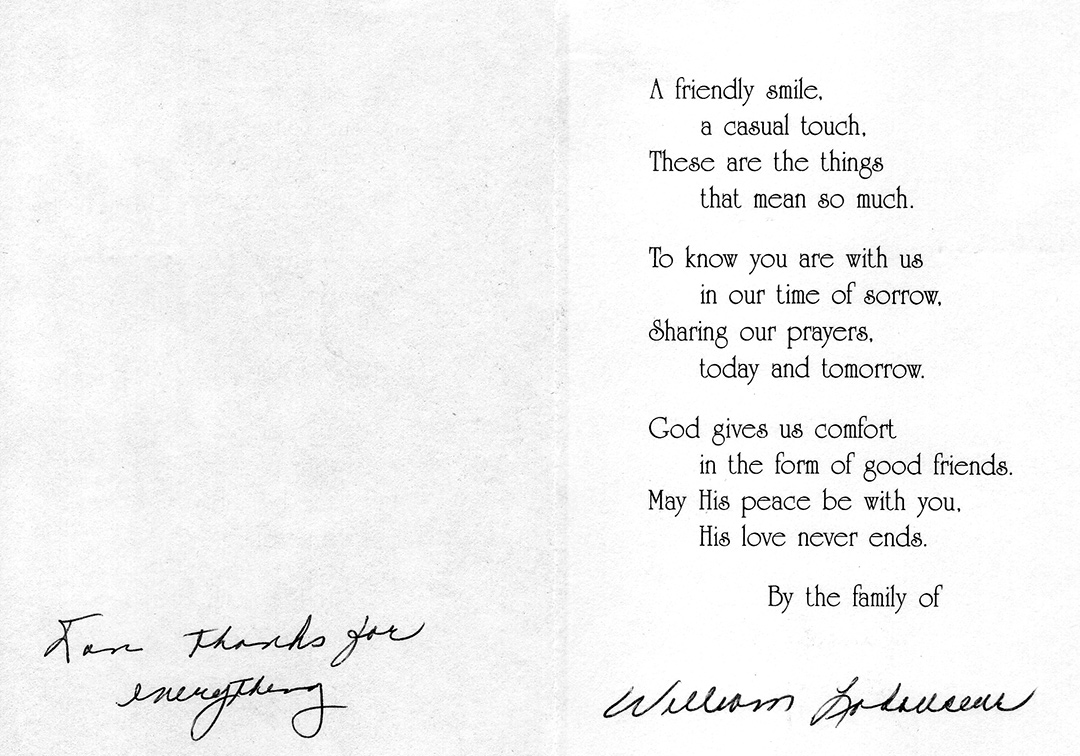 thanks for
everything
A friendly smile,
a casual touch,
These are the things
that mean so much.
To know you are with us
in our time of sorrow,
Sharing our prayers,
today and tomorrow.
God gives us comfort
in the form of good friends.
May His peace be with you,
His love never ends.
By the family of
William